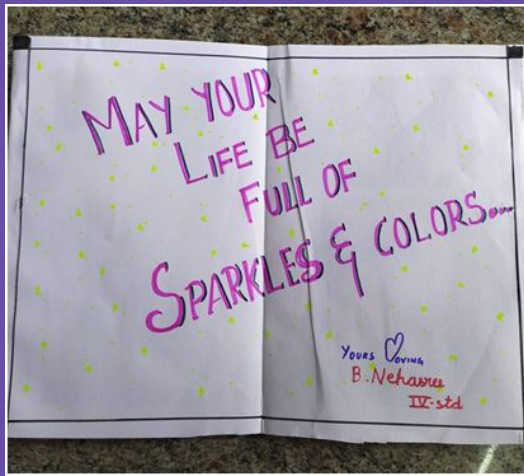 MAY YOUR
LIFE BE
FULL OF
SPARKLES & COLORS...
YOURS Loving
B. Nehasree
IV-std